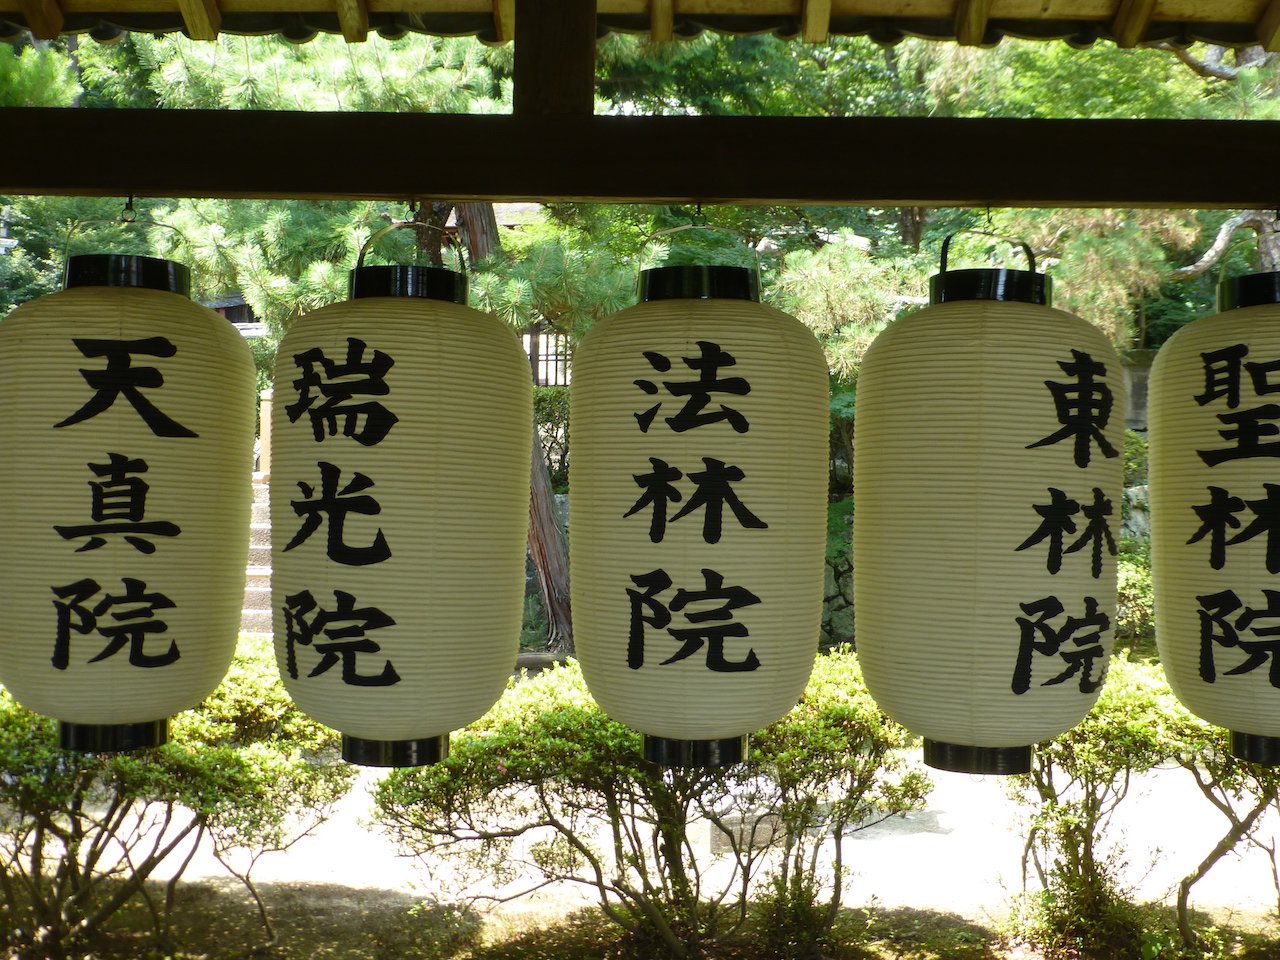 天真院
瑞光院
法林院
東林院
聖林院